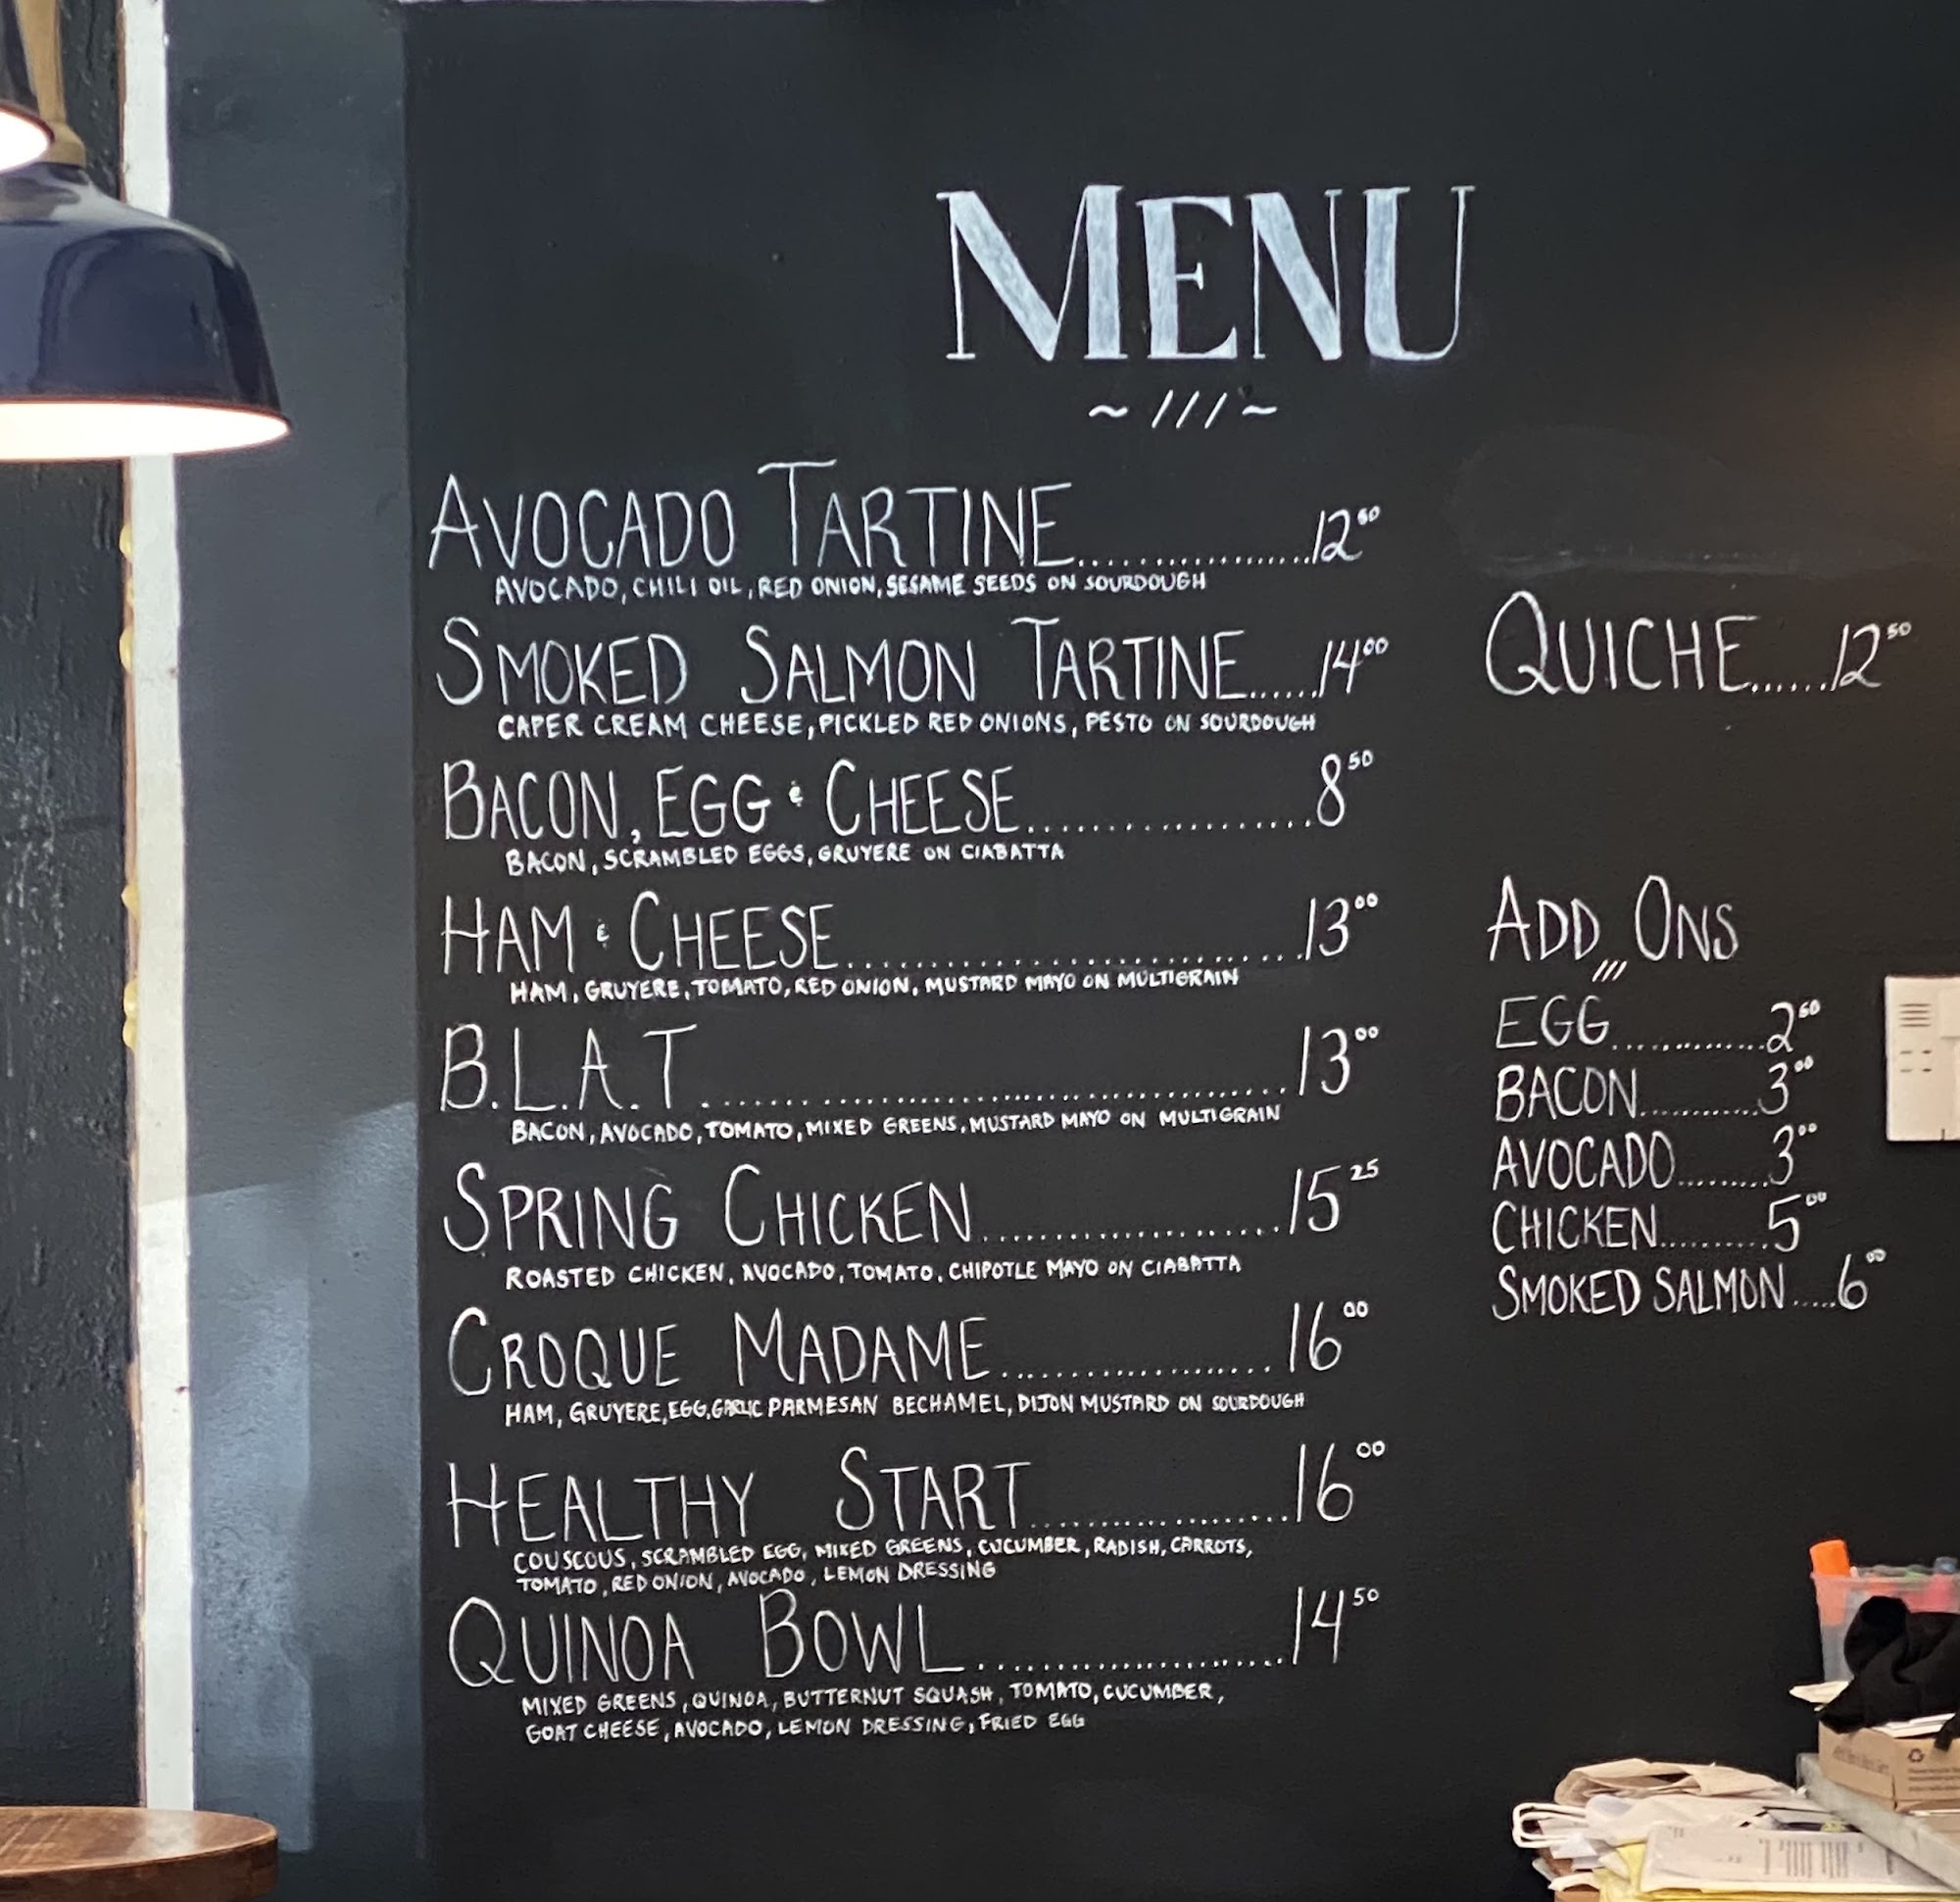 MENU
~///~
AVOCADO TARTINE..................12⁵⁰
AVOCADO, CHILI OIL, RED ONION, SESAME SEEDS ON SOURDOUGH
SMOKED SALMON TARTINE......14⁰⁰
CAPER CREAM CHEESE, PICKLED RED ONIONS, PESTO ON SOURDOUGH
BACON, EGG & CHEESE..................8⁵⁰
BACON, SCRAMBLED EGGS, GRUYERE ON CIABATTA
HAM & CHEESE..............................13⁰⁰
HAM, GRUYERE, TOMATO, RED ONION, MUSTARD MAYO ON MULTIGRAIN
B.L.A.T........................................13⁰⁰
BACON, AVOCADO, TOMATO, MIXED GREENS, MUSTARD MAYO ON MULTIGRAIN
SPRING CHICKEN......................15²⁵
ROASTED CHICKEN, AVOCADO, TOMATO, CHIPOTLE MAYO ON CIABATTA
CROQUE MADAME....................16⁰⁰
HAM, GRUYERE, EGG, GARLIC PARMESAN BECHAMEL, DIJON MUSTARD ON SOURDOUGH
HEALTHY START....................16⁰⁰
COUSCOUS, SCRAMBLED EGG, MIXED GREENS, CUCUMBER, RADISH, CARROTS,
TOMATO, RED ONION, AVOCADO, LEMON DRESSING
QUINOA BOWL.......................14⁵⁰
MIXED GREENS, QUINOA, BUTTERNUT SQUASH, TOMATO, CUCUMBER,
GOAT CHEESE, AVOCADO, LEMON DRESSING, FRIED EGG
QUICHE......12⁵⁰
ADD ONS
///
EGG..............2⁵⁰
BACON............3⁰⁰
AVOCADO.........3⁰⁰
CHICKEN..........5⁰⁰
SMOKED SALMON.....6⁰⁰